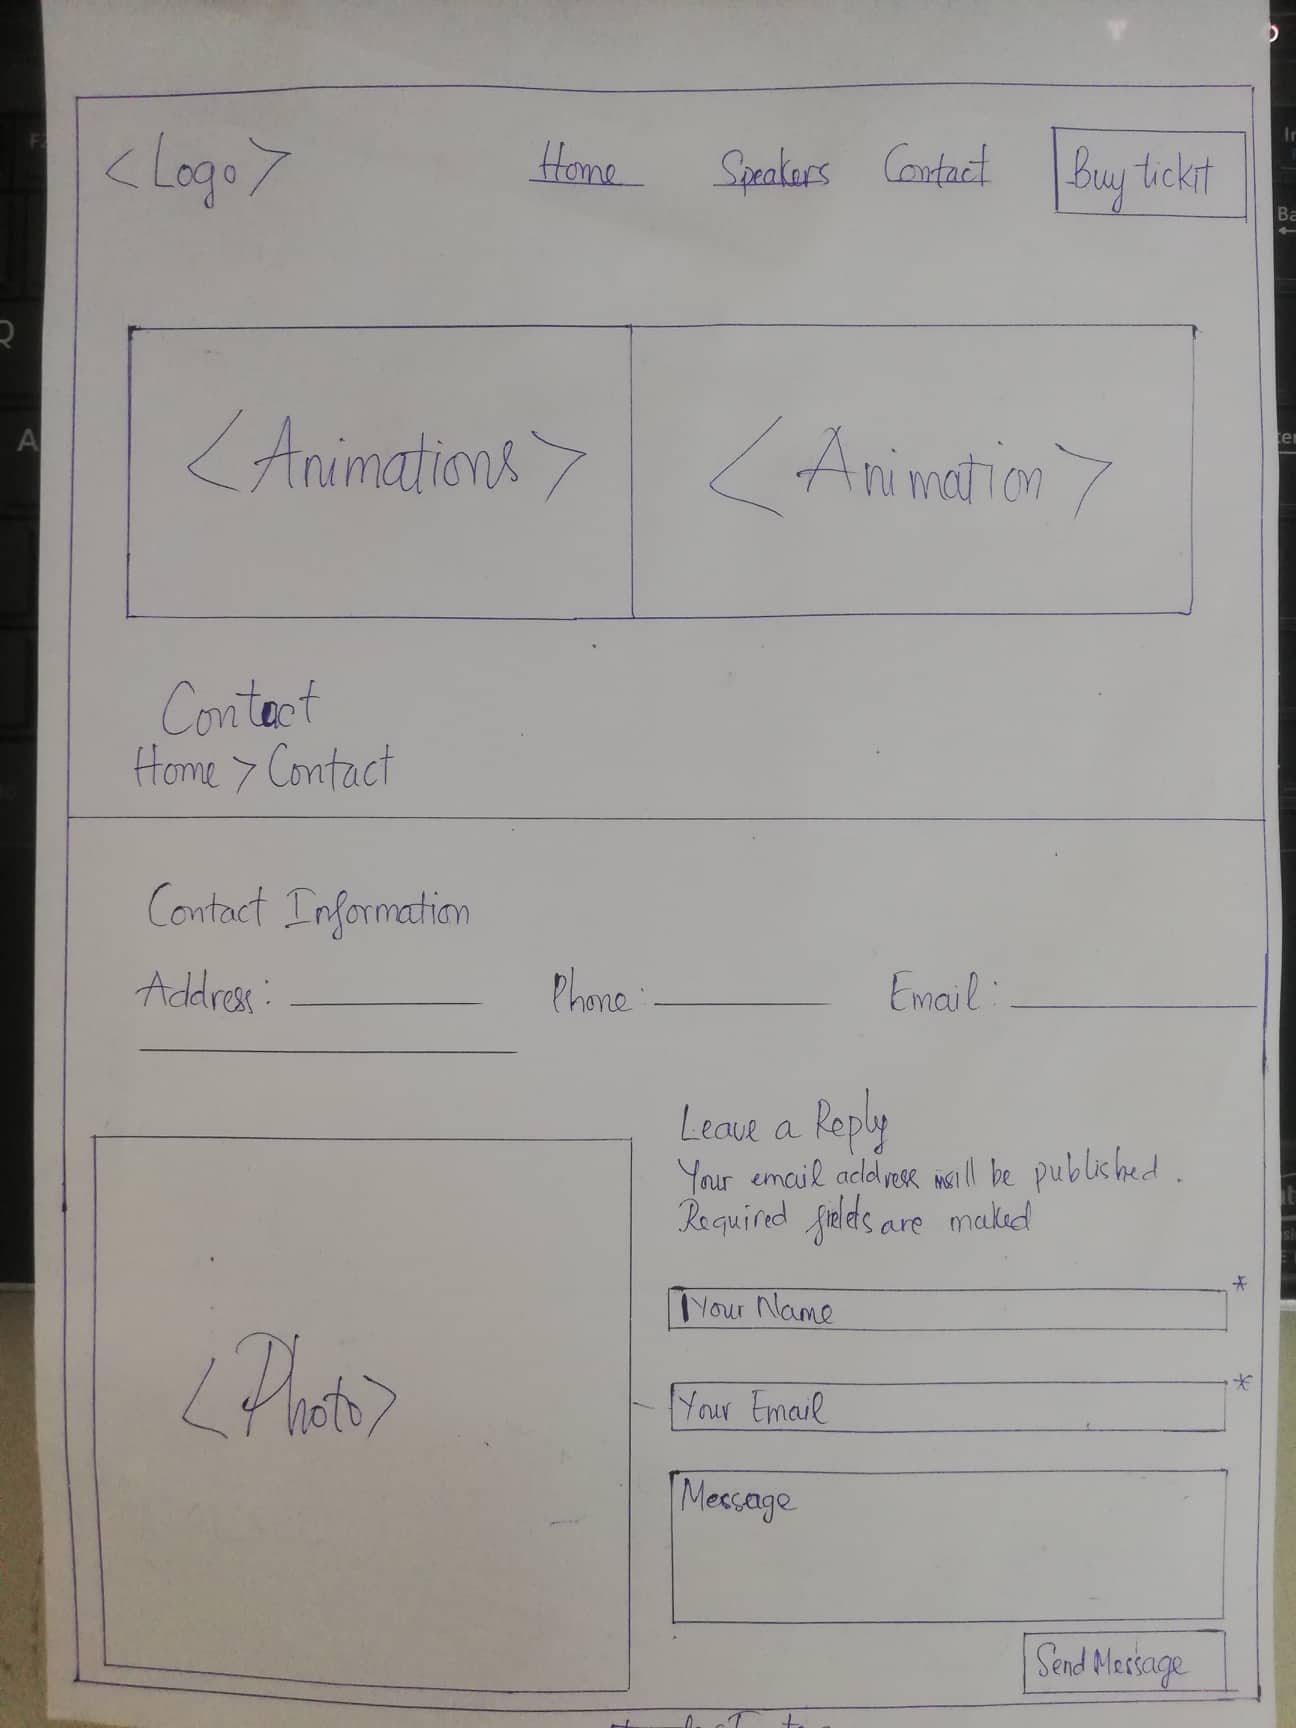 <Logo> Home Speakers Contact Buy tickit
<Animations> <Animation>
Contact
Home > Contact
Contact Information
Address: Phone: Email:
Leave a Reply
Your email address will be published.
Required fields are maked
Your Name *
Your Email *
Message
<Photo>
Send Message